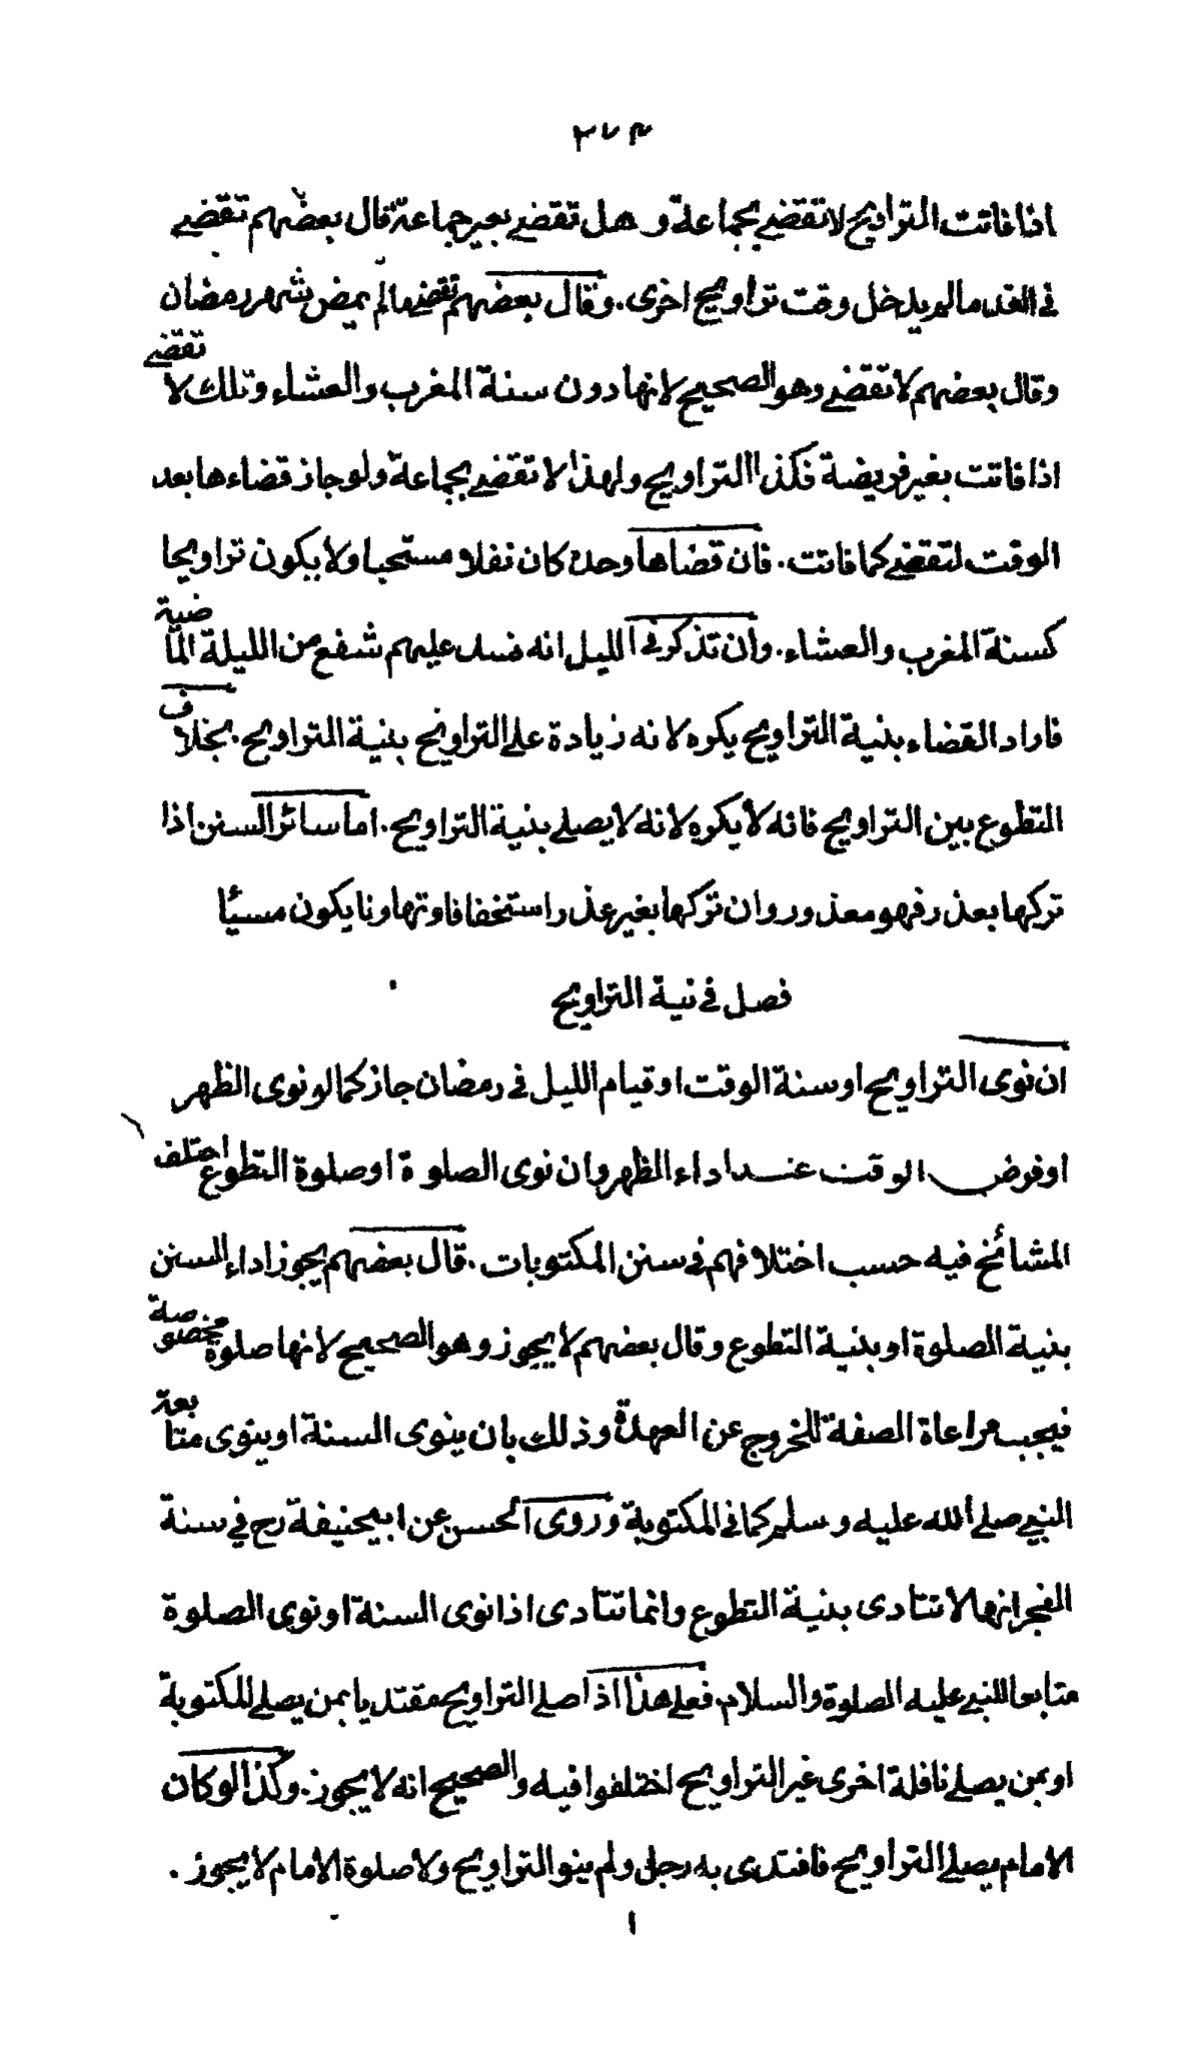 ٢٧٣
اذا فاتت التراويح لا تقضى بجماعة و هل تقضى بغير جماعة قال بعضهم تقضى
فى الغد ما لم يدخل وقت تراويح اخرى. وقال بعضهم تقضى ما لم يمض شهر رمضان
وقال بعضهم لا تقضى وهو الصحيح لانها دون سنة المغرب والعشاء وتلك لا تقضى
اذا فاتت بغير فريضة فكذا التراويح ولهذا لا تقضى بجماعة ولو جاز قضاءها بعد
الوقت لتقضى كما فاتت. فان قضاها وحده كان نفلا مستحبا ولا يكون تراويحا
كسنة المغرب والعشاء. وان تذكر فى الليل انه فسد عليهم شفع من الليلة الماضية
فاراد القضاء بنية التراويح يكره لانه زيادة على التراويح بنية التراويح. بخلاف
التطوع بين التراويح فانه لا يكره لانه لا يصلى بنية التراويح. اما سائر السنن اذا
تركها بعذر فهو معذور وان تركها بغير عذر استخفافا وتهاونا يكون مسيئا
فصل فى نية التراويح
ان نوى التراويح او سنة الوقت او قيام الليل فى رمضان جاز كما لو نوى الظهر
او فرض الوقت عند اداء الظهر وان نوى الصلوة او صلوة التطوع اختلف
المشائخ فيه حسب اختلافهم فى سنن المكتوبات. قال بعضهم يجوز اداء السنن
بنية الصلوة او بنية التطوع وقال بعضهم لا يجوز وهو الصحيح لانها صلوة مخصوصة
فيجب مراعاة الصفة للخروج عن العهدة وذلك بان ينوى السنة او ينوى متابعة
النبى صلى الله عليه وسلم كما فى المكتوبة وروى الحسن عن ابيحنيفة رح فى سنة
الفجر انها لا تتادى بنية التطوع وانما تتادى اذا نوى السنة او نوى الصلوة
متابعا للنبى عليه الصلوة والسلام. فعلى هذا اذا صلى التراويح مقتديا بمن يصلى المكتوبة
او بمن يصلى نافلة اخرى غير التراويح اختلفوا فيه والصحيح انه لا يجوز. وكذا لو كان
الامام يصلى التراويح فاقتدى به رجل ولم ينو التراويح ولا صلوة الامام لا يجوز.